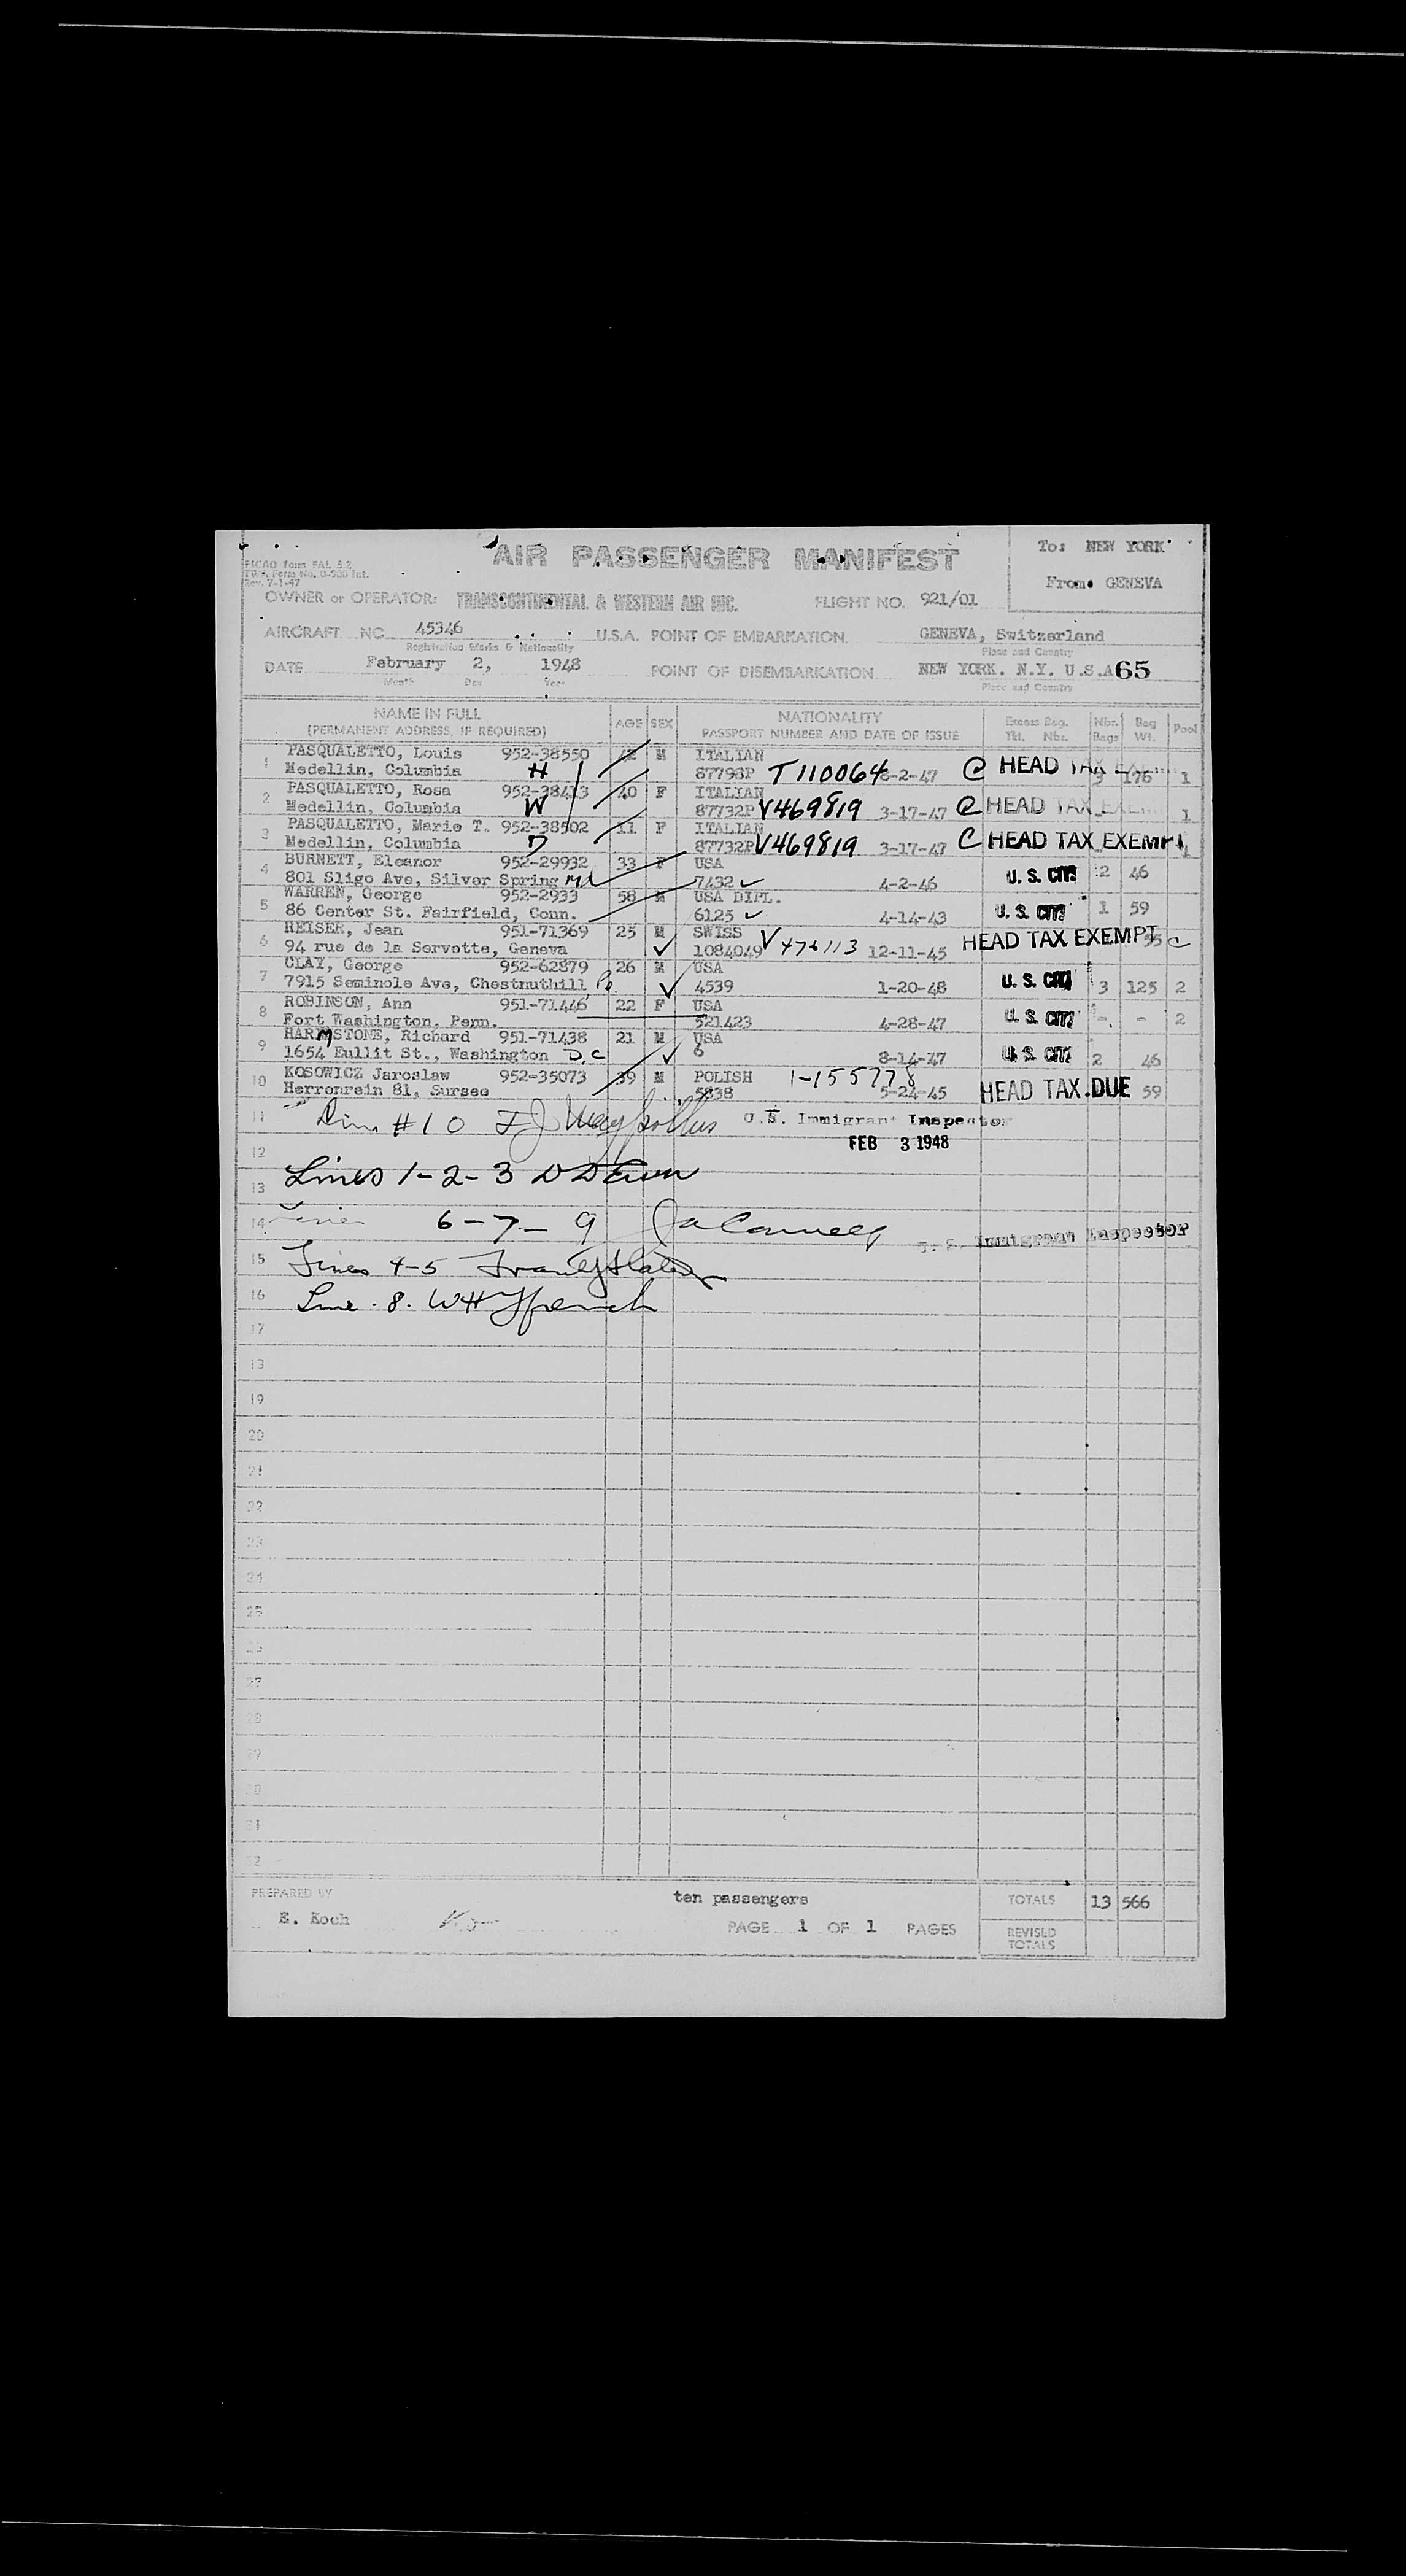 AIR PASSENGER MANIFEST
To: NEW YORK
From: GENEVA
Rev. 7-1-47
OWNER or OPERATOR: TRANSCONTINENTAL & WESTERN AIR INC. FLIGHT NO. 921/01
AIRCRAFT NC 45346 U.S.A. POINT OF EMBARKATION GENEVA, Switzerland
Registration Marks & Nationality Place and Country
DATE February 2, 1948 POINT OF DISEMBARKATION NEW YORK. N.Y. U.S.A 65
Month Day Year Place and Country
NAME IN FULL AGE SEX NATIONALITY Excess Bag. Nbr. Bag Pool
(PERMANENT ADDRESS, IF REQUIRED) PASSPORT NUMBER AND DATE OF ISSUE Tkt. Nbr. Bags Wt.
1 PASQUALETTO, Louis 952-38550 42 M ITALIAN
Medellin, Columbia H 87798P T110064 -2-47 C HEAD TAX 3 176 1
2 PASQUALETTO, Rosa 952-38413 40 F ITALIAN
Medellin, Columbia W 87732P V469819 3-17-47 C HEAD TAX EXEM 1
3 PASQUALETTO, Marie T. 952-38502 11 F ITALIAN
Medellin, Columbia D 87732P V469819 3-17-47 C HEAD TAX EXEMPT 1
4 BURNETT, Eleanor 952-29932 33 F USA
801 Sligo Ave, Silver Spring Md 7432 4-2-46 U. S. CIT 2 46
5 WARREN, George 952-2933 58 M USA DIPL.
86 Center St. Fairfield, Conn. 6125 4-14-43 U. S. CIT 1 59
6 REISER, Jean 951-71369 25 M SWISS
94 rue de la Servette, Geneva 1084049 V 476113 12-11-45 HEAD TAX EXEMPT 55 C
7 CLAY, George 952-62879 26 M USA
7915 Seminole Ave, Chestnuthill Pa. 4539 1-20-48 U. S. CIT 3 125 2
8 ROBINSON, Ann 951-71446 22 F USA
Fort Washington, Penn. 521423 4-28-47 U. S. CIT - - 2
9 HARMSTONE, Richard 951-71438 21 M USA
1654 Eullit St., Washington D.C 6 8-14-47 U. S. CIT 2 46
10 KOSOWICZ Jaroslaw 952-35073 39 M POLISH 1-155778
Herronrein 81, Sursee 5838 5-24-45 HEAD TAX DUE 59
11 #10 U.S. Immigrant Inspector
FEB 3 1948
12
13 Lines 1-2-3
14 Lines 6-7-9 U. S. Immigrant Inspector
15 Lines 4-5
16 Line 8. WH French
17
18
19
20
21
22
23
24
25
26
27
28
29
30
31
32
PREPARED BY ten passengers TOTALS 13 566
E. Koch PAGE 1 OF 1 PAGES REVISED
TOTALS